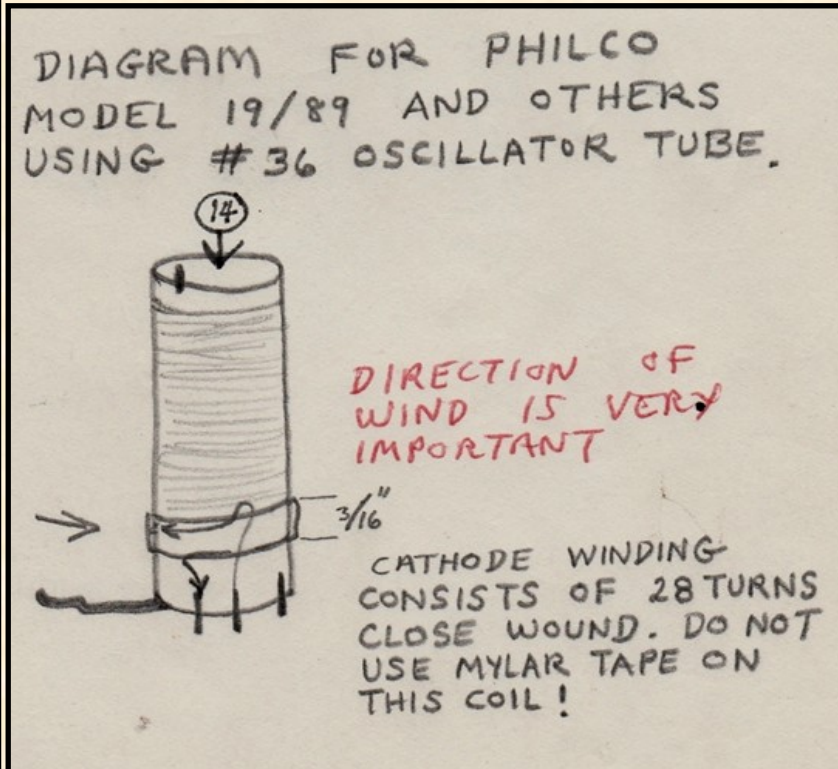 DIAGRAM FOR PHILCO
MODEL 19/89 AND OTHERS
USING #36 OSCILLATOR TUBE.
14
DIRECTION OF
WIND IS VERY
IMPORTANT
3/16"
CATHODE WINDING
CONSISTS OF 28 TURNS
CLOSE WOUND. DO NOT
USE MYLAR TAPE ON
THIS COIL!